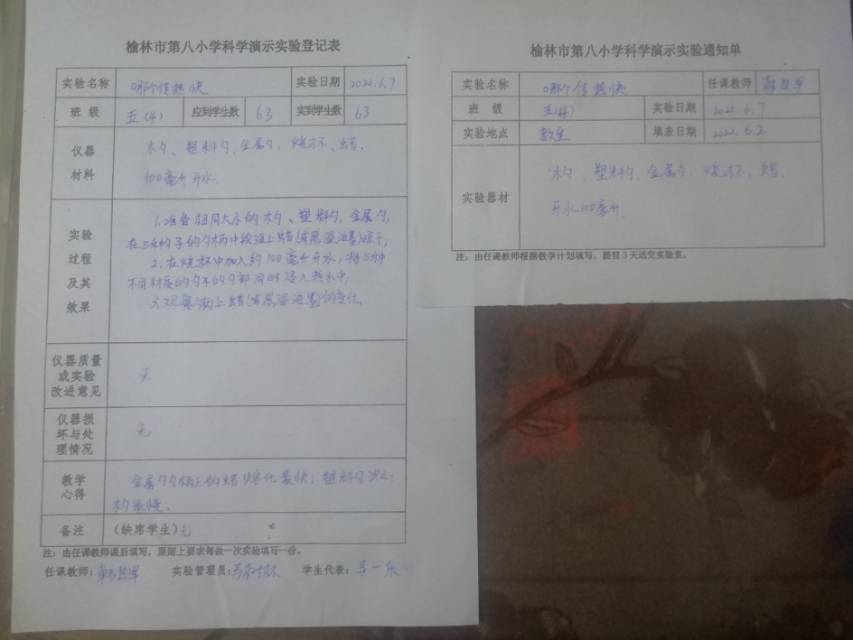 榆林市第八小学科学演示实验登记表
实验名称 哪个传热快 实验日期 2022.6.7
班 级 五(4) 应到学生数 63 实到学生数 63
仪器
材料
木勺、塑料勺、金属勺、烧杯、蜡.
100毫升开水.
实验
过程
及其
效果
1.准备相同大小的木勺、塑料勺,金属勺,
在三的子的勺柄中段滴上蜡
2.在烧杯中加入约100毫升开水,将3种
不同材质的勺子的勺部同时浸入热水中,
3.观察滴上蜡的变化.
仪器质量
或实验
改进意见
无
仪器损
坏与处
理情况
无
教学
心得
金属勺勺柄上的蜡熔化最快;塑料勺次之;
木勺最慢.
备注 (缺席学生)无
注:由任课教师课后填写,原则上要求每做一次实验填写一份。
任课教师: 实验管理员: 学生代表:马一乐
榆林市第八小学科学演示实验通知单
实验名称 哪个传热快 任课教师
班 级 五(4) 实验日期 2022.6.7
实验地点 教室 填表日期 2022.6.2
实验器材
木勺、塑料勺、金属勺、烧杯、蜡.
开水100毫升.
注:由任课教师根据教学计划填写,提前3天送交实验室。